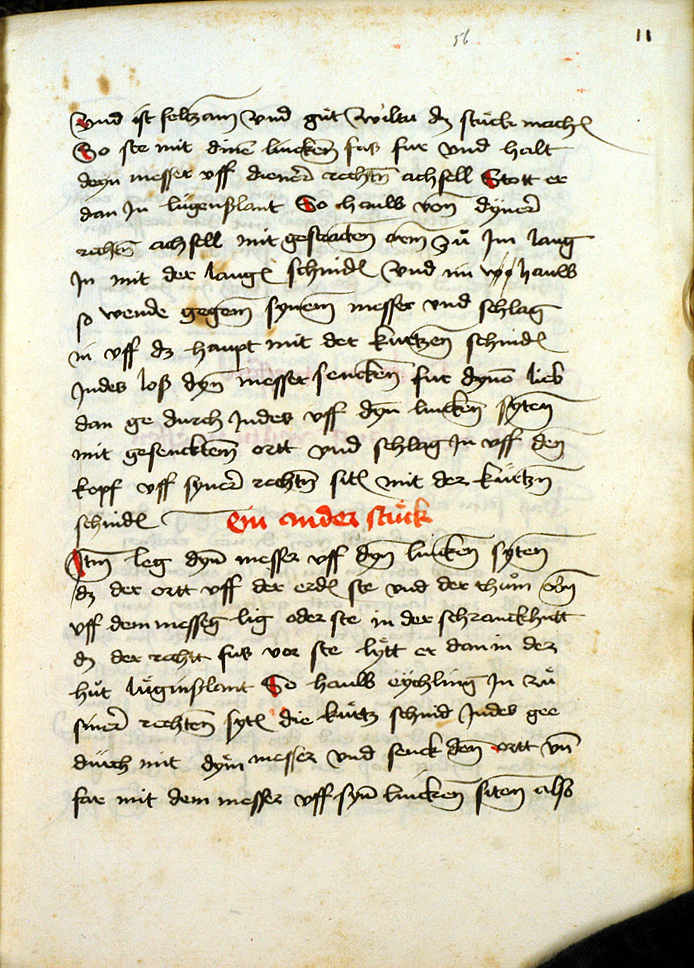 56
11
Vnd ist seltzam Vnd gůt wiltu dz stůck mach
So ste mit dinē lincken fuß fur vnd halt
deyn messer vff dienē rechtē achsell Stett er
dan In lůgenßlant So hauw von dynē
rechtē achsell mit gestracten arm zů Im lang
In mit der lang schnid Vnd im hauw
so wende gegem synem messer vnd schlag
in vff dz haupt mit der kurtzen schnid
Indes loß dyn messer sencken fur dynē lieb
dan ge durch Indes vff dyn lincken syten
mit gesencktem ortt vnd schlag In vff den
kopf vff synē rechtē sit mit der kůrtzn
schnid Ein ander stuck
Itm leg dyn messer vff dyn lincken syten
dz der ortt vff der erd ste vnd der thům obn
vff dem messer lig oder ste in der schranckhutt
dz der rechtt fuß vor ste lytt er dan in der
hůt lůginßlant So hauw eychling In zů
sinē rechten syt die kůrtz schnid Indes gee
durch mit dym messer vnd senck den ortt vn
far mit dem messer vff syn lincken siten also